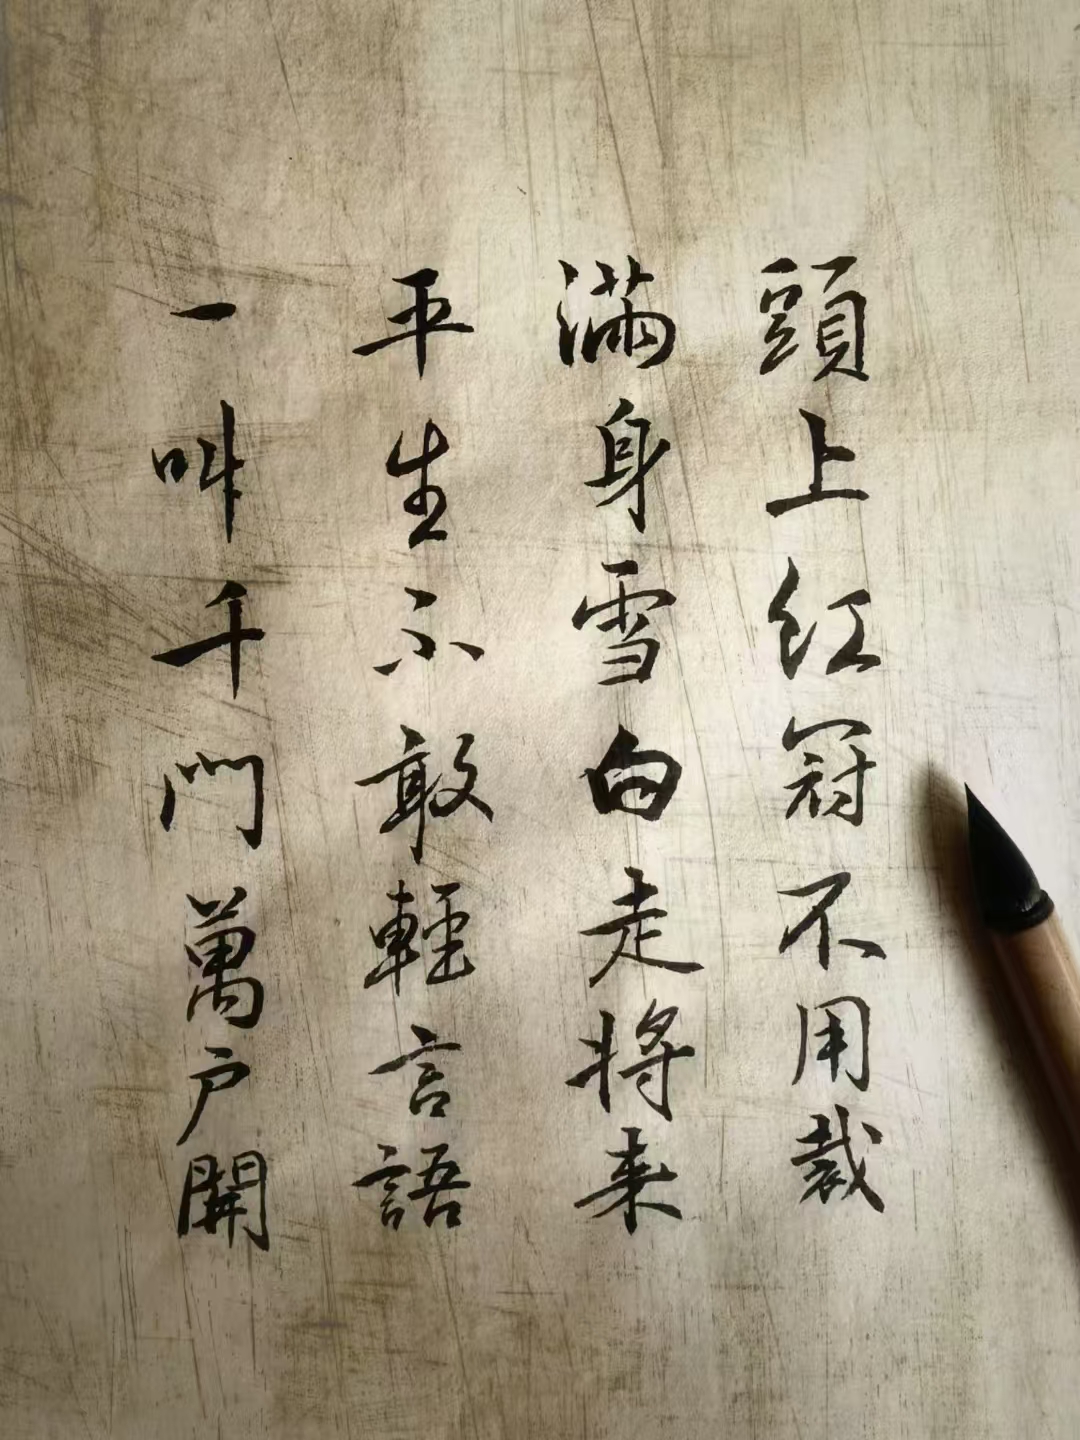 頭上红冠不用裁
滿身雪白走将来
平生不敢輕言語
一叫千門萬户開